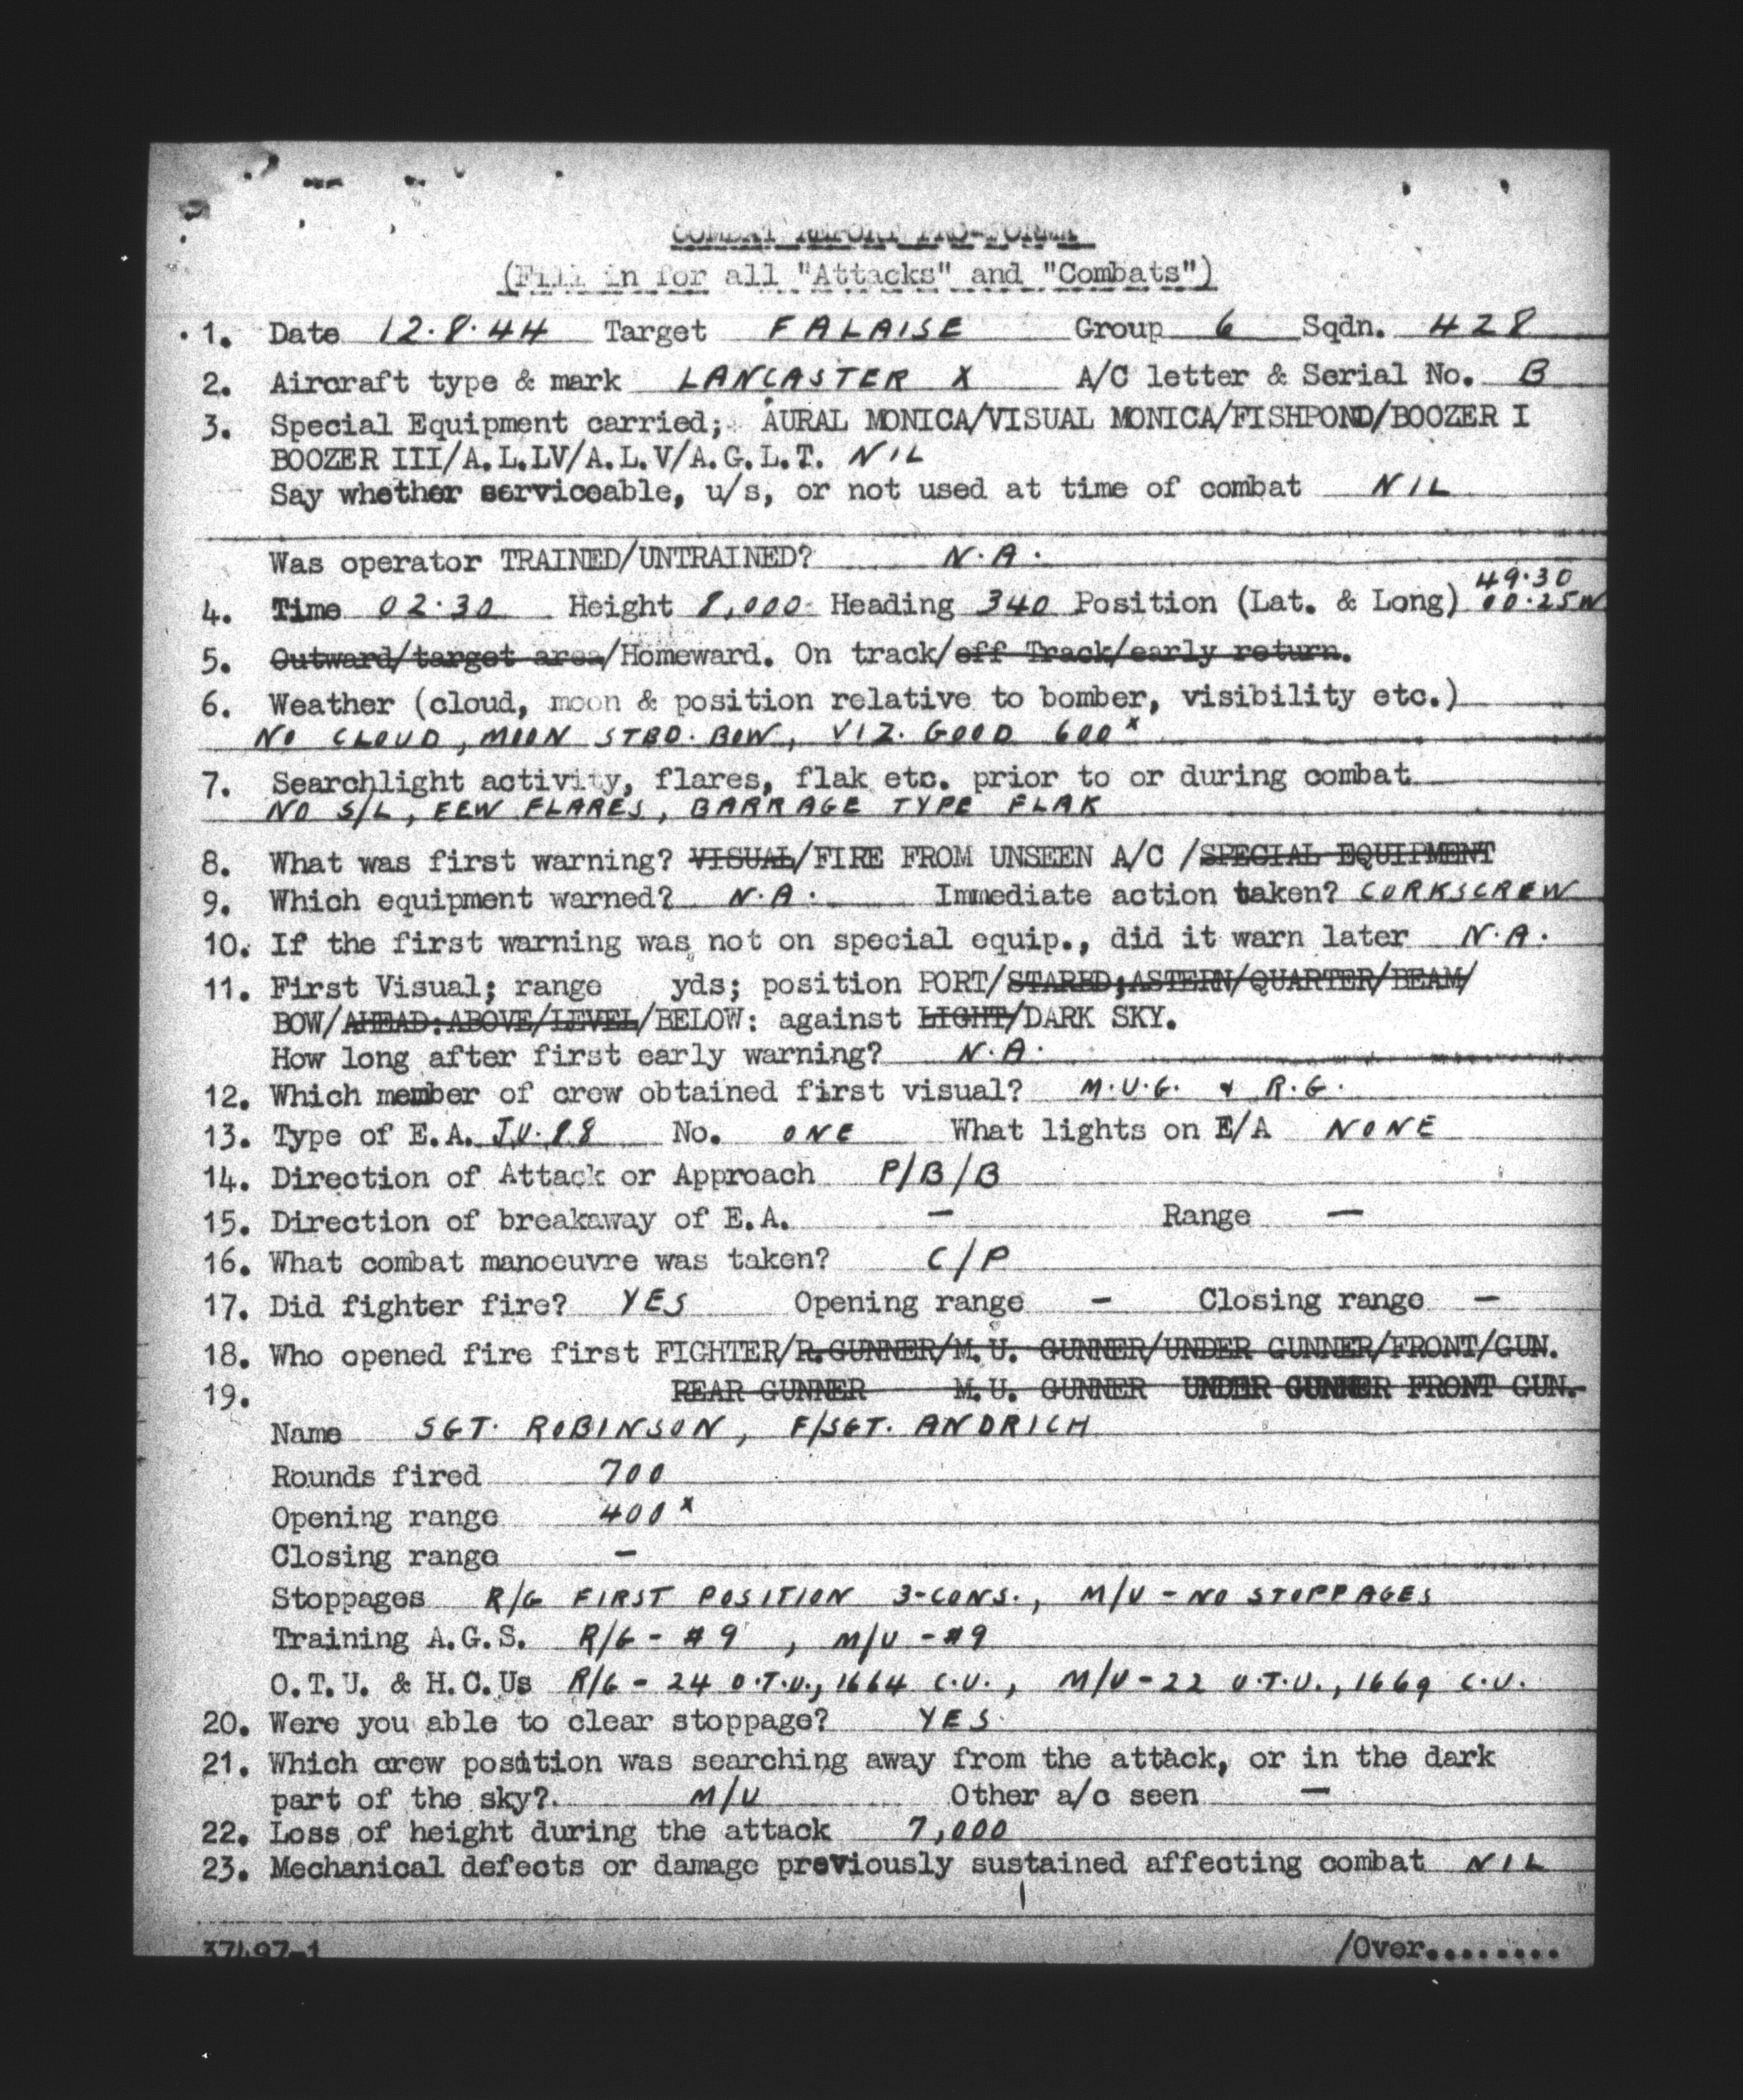 COMBAT REPORT PRO-FORMA
(Fill in for all "Attacks" and "Combats")
1. Date 12.8.44 Target FALAISE Group 6 Sqdn. 428
2. Aircraft type & mark LANCASTER X A/C letter & Serial No. B
3. Special Equipment carried; AURAL MONICA/VISUAL MONICA/FISHPOND/BOOZER I
BOOZER III/A.L.LV/A.L.V/A.G.L.T. NIL
Say whether serviceable, u/s, or not used at time of combat NIL
Was operator TRAINED/UNTRAINED? N.A.
49.30
4. Time 02.30 Height 8,000 Heading 340 Position (Lat. & Long) 00.25W
5. Outward/target area/Homeward. On track/off Track/early return.
6. Weather (cloud, moon & position relative to bomber, visibility etc.)
NO CLOUD, MOON STBD. BOW, VIZ. GOOD 600x
7. Searchlight activity, flares, flak etc. prior to or during combat
NO S/L, FEW FLARES, BARRAGE TYPE FLAK
8. What was first warning? VISUAL/FIRE FROM UNSEEN A/C /SPECIAL EQUIPMENT
9. Which equipment warned? N.A. Immediate action taken? CORKSCREW
10. If the first warning was not on special equip., did it warn later N.A.
11. First Visual; range yds; position PORT/STARBD;ASTERN/QUARTER/BEAM/
BOW/AHEAD:ABOVE/LEVEL/BELOW: against LIGHT/DARK SKY.
How long after first early warning? N.A.
12. Which member of crew obtained first visual? M.U.G. & R.G.
13. Type of E.A. JU.88 No. ONE What lights on E/A NONE
14. Direction of Attack or Approach P/B/B
15. Direction of breakaway of E.A. — Range —
16. What combat manoeuvre was taken? C/P
17. Did fighter fire? YES Opening range — Closing range —
18. Who opened fire first FIGHTER/R.GUNNER/M.U. GUNNER/UNDER GUNNER/FRONT/GUN.
19. REAR GUNNER M.U. GUNNER UNDER GUNNER FRONT GUN.
Name SGT. ROBINSON, F/SGT. ANDRICH
Rounds fired 700
Opening range 400x
Closing range —
Stoppages R/G FIRST POSITION 3-CONS., M/U - NO STOPPAGES
Training A.G.S. R/G - #9, M/U - #9
O.T.U. & H.C.Us R/G - 24 O.T.U., 1664 C.U., M/U - 22 O.T.U., 1669 C.U.
20. Were you able to clear stoppage? YES
21. Which crew position was searching away from the attack, or in the dark
part of the sky?. M/U Other a/c seen —
22. Loss of height during the attack 7,000
23. Mechanical defects or damage previously sustained affecting combat NIL
37497-1
/Over........